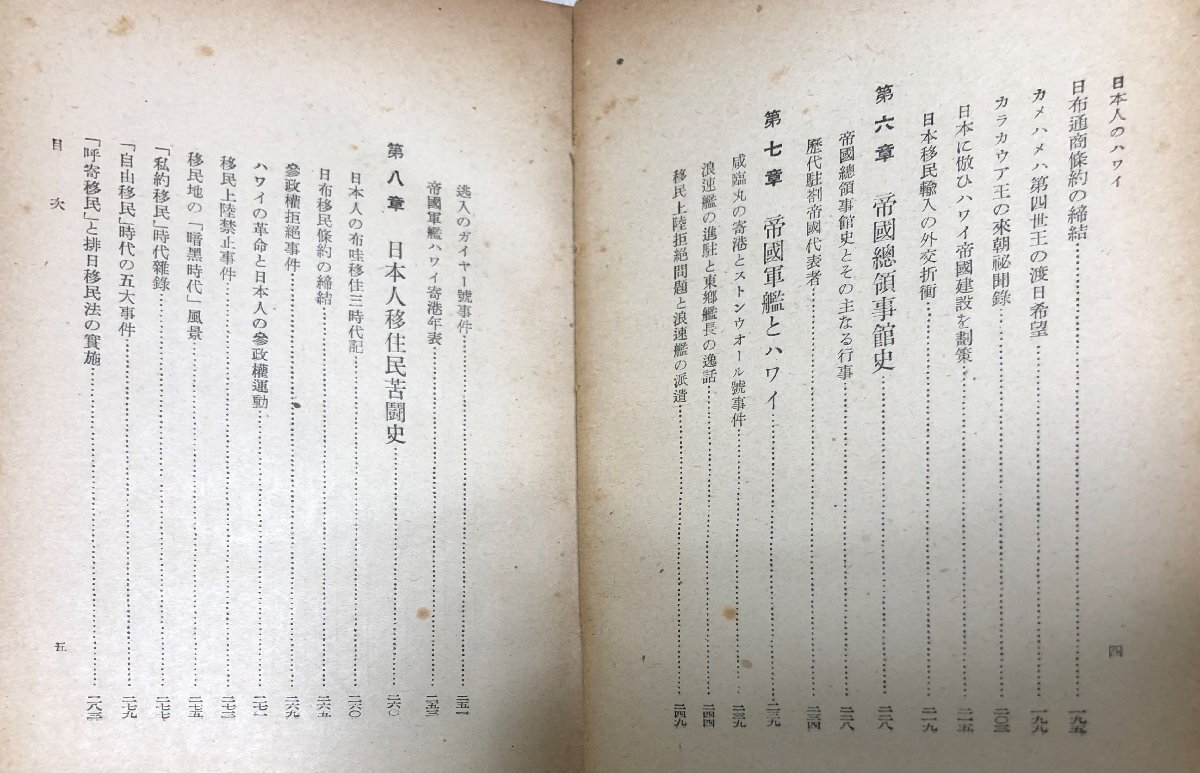 日本人のハワイ
四
日布通商條約の締結…………一九五
カメハメハ第四世王の渡日希望…………一九九
カラカウア王の來朝祕聞錄…………二〇三
日本に倣ひハワイ帝國建設を劃策…………二一五
日本移民輸入の外交折衝…………二一九
第六章 帝國總領事館史…………二二八
帝國總領事館史とその主なる行事…………二二八
歷代駐劄帝國代表者…………二三四
第七章 帝國軍艦とハワイ…………二三九
咸臨丸の寄港とストンウオール號事件…………二三九
浪速艦の進駐と東鄕艦長の逸話…………二四四
移民上陸拒絕問題と浪速艦の派遣…………二四九
逃入のガイヤー號事件…………二五一
帝國軍艦ハワイ寄港年表…………二五三
第八章 日本人移住民苦鬪史…………二六〇
日本人の布哇移住三時代記…………二六〇
日布移民條約の締結…………二六五
參政權拒絕事件…………二六九
ハワイの革命と日本人の參政權運動…………二七一
移民上陸禁止事件…………二七三
移民地の「暗黑時代」風景…………二七五
「私約移民」時代雜錄…………二七七
「自由移民」時代の五大事件…………二七九
「呼寄移民」と排日移民法の實施…………二八三
目次
五